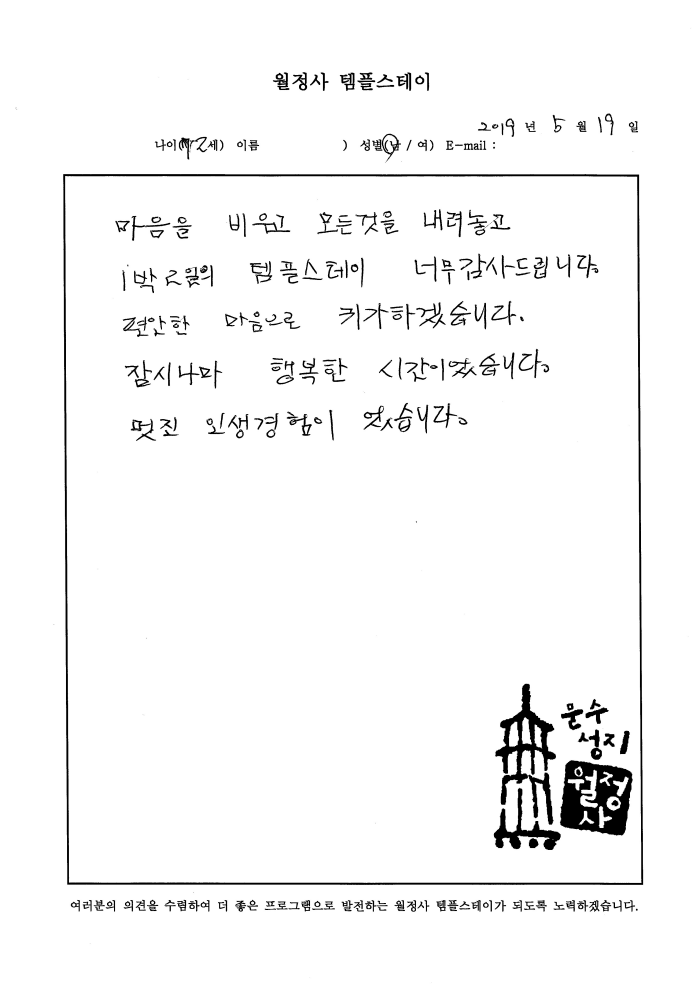 월정사 템플스테이
2019 년 5 월 19 일
나이( 72세) 이름 ) 성별(남 / 여) E-mail :
마음을 비우고 모든것을 내려놓고
1박 2일의 템플스테이 너무감사드립니다.
편안한 마음으로 귀가하겠습니다.
잠시나마 행복한 시간이었습니다.
멋진 인생경험이 었습니다.
문수
성지
월정
사
여러분의 의견을 수렴하여 더 좋은 프로그램으로 발전하는 월정사 템플스테이가 되도록 노력하겠습니다.